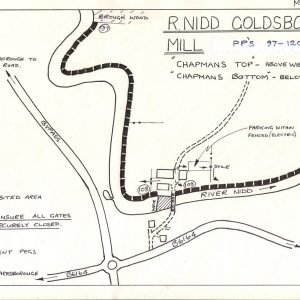 M
BROUGH WOOD
97
R. NIDD GOLDSBO
MILL PP'S 97-120
"CHAPMANS TOP" - ABOVE WE
"CHAPMANS BOTTOM" - BELO
BOROUGH TO
ROAD.
BYPASS
PARKING WITHIN
FENCED (ELECTRIC)
STILE
108
109
RIVER NIDD
BITED AREA
ENSURE ALL GATES
SECURELY CLOSED.
ENT PEGS
ARESBOROUGH
B6164
B6164